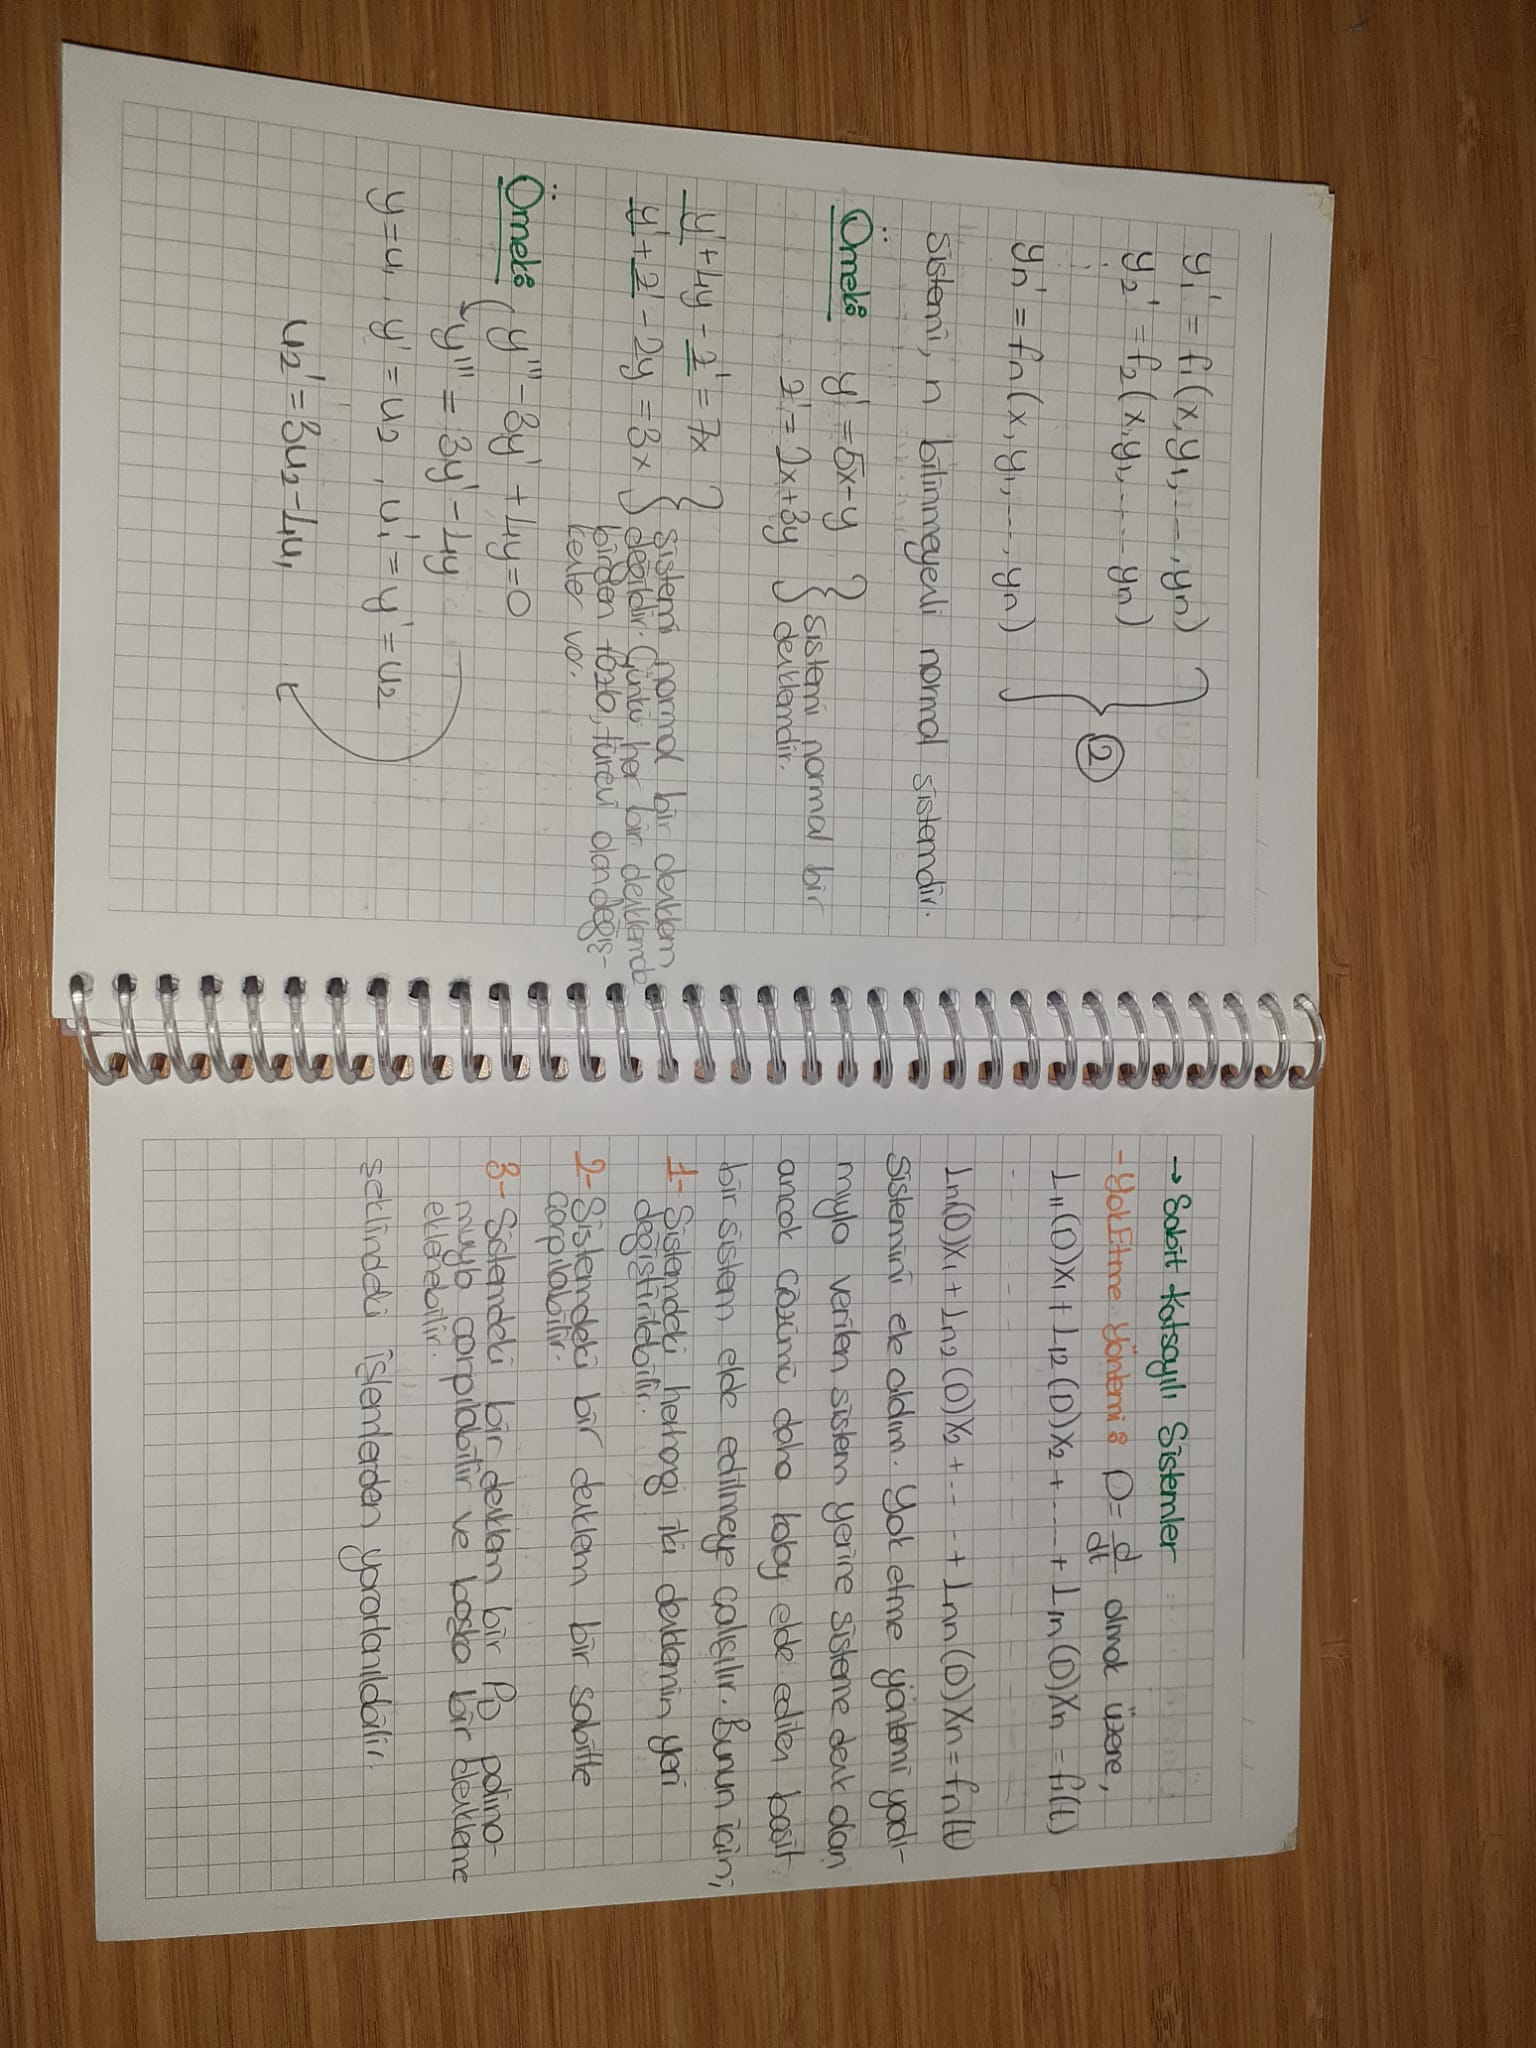 y₁' = f₁(x, y₁, ..., yn)
y₂' = f₂(x, y₁, ..... yn)
⋮
yn' = fn(x, y₁, ..., yn)
②
sistemi, n bilinmeyenli normal sistemdir.
Örnek: y' = 5x-y
z' = 2x+3y
sistemi normal bir
denklemdir.
y'+4y-z' = 7x
y'+z'-2y = 3x
sistemi normal bir denklem
değildir. Çünkü her bir denklemde
birden fazla, türevi olan değiş-
kenler var.
Örnek: y'''-3y'+4y=0
y''' = 3y'-4y
y=u₁, y' = u₂, u₁' = y' = u₂
u₂' = 3u₂-4u₁
→ Sabit Katsayılı Sistemler
- Yok Etme Yöntemi: D = d/dt olmak üzere,
L₁₁(D)x₁ + L₁₂(D)x₂ + ..... + L₁n(D)xn = f₁(t)
- - - - - - - - - - - -
Ln(D)x₁ + Ln₂(D)x₂ + ..... + Lnn(D)xn = fn(t)
sistemini ele aldım. Yok etme yöntemi yadı-
mıyla verilen sistem yerine sisteme denk olan
ancak çözümü daha kolay elde edilen basit
bir sistem elde edilmeye çalışılır. Bunun için;
1- Sistemdeki herhangi iki denklemin yeri
değiştirilebilir.
2- Sistemdeki bir denklem bir sabitle
çarpılabilir.
3- Sistemdeki bir denklem bir PD polino-
muyla çarpılabilir ve başka bir denkleme
eklenebilir.
şeklindeki işlemlerden yararlanılabilir.